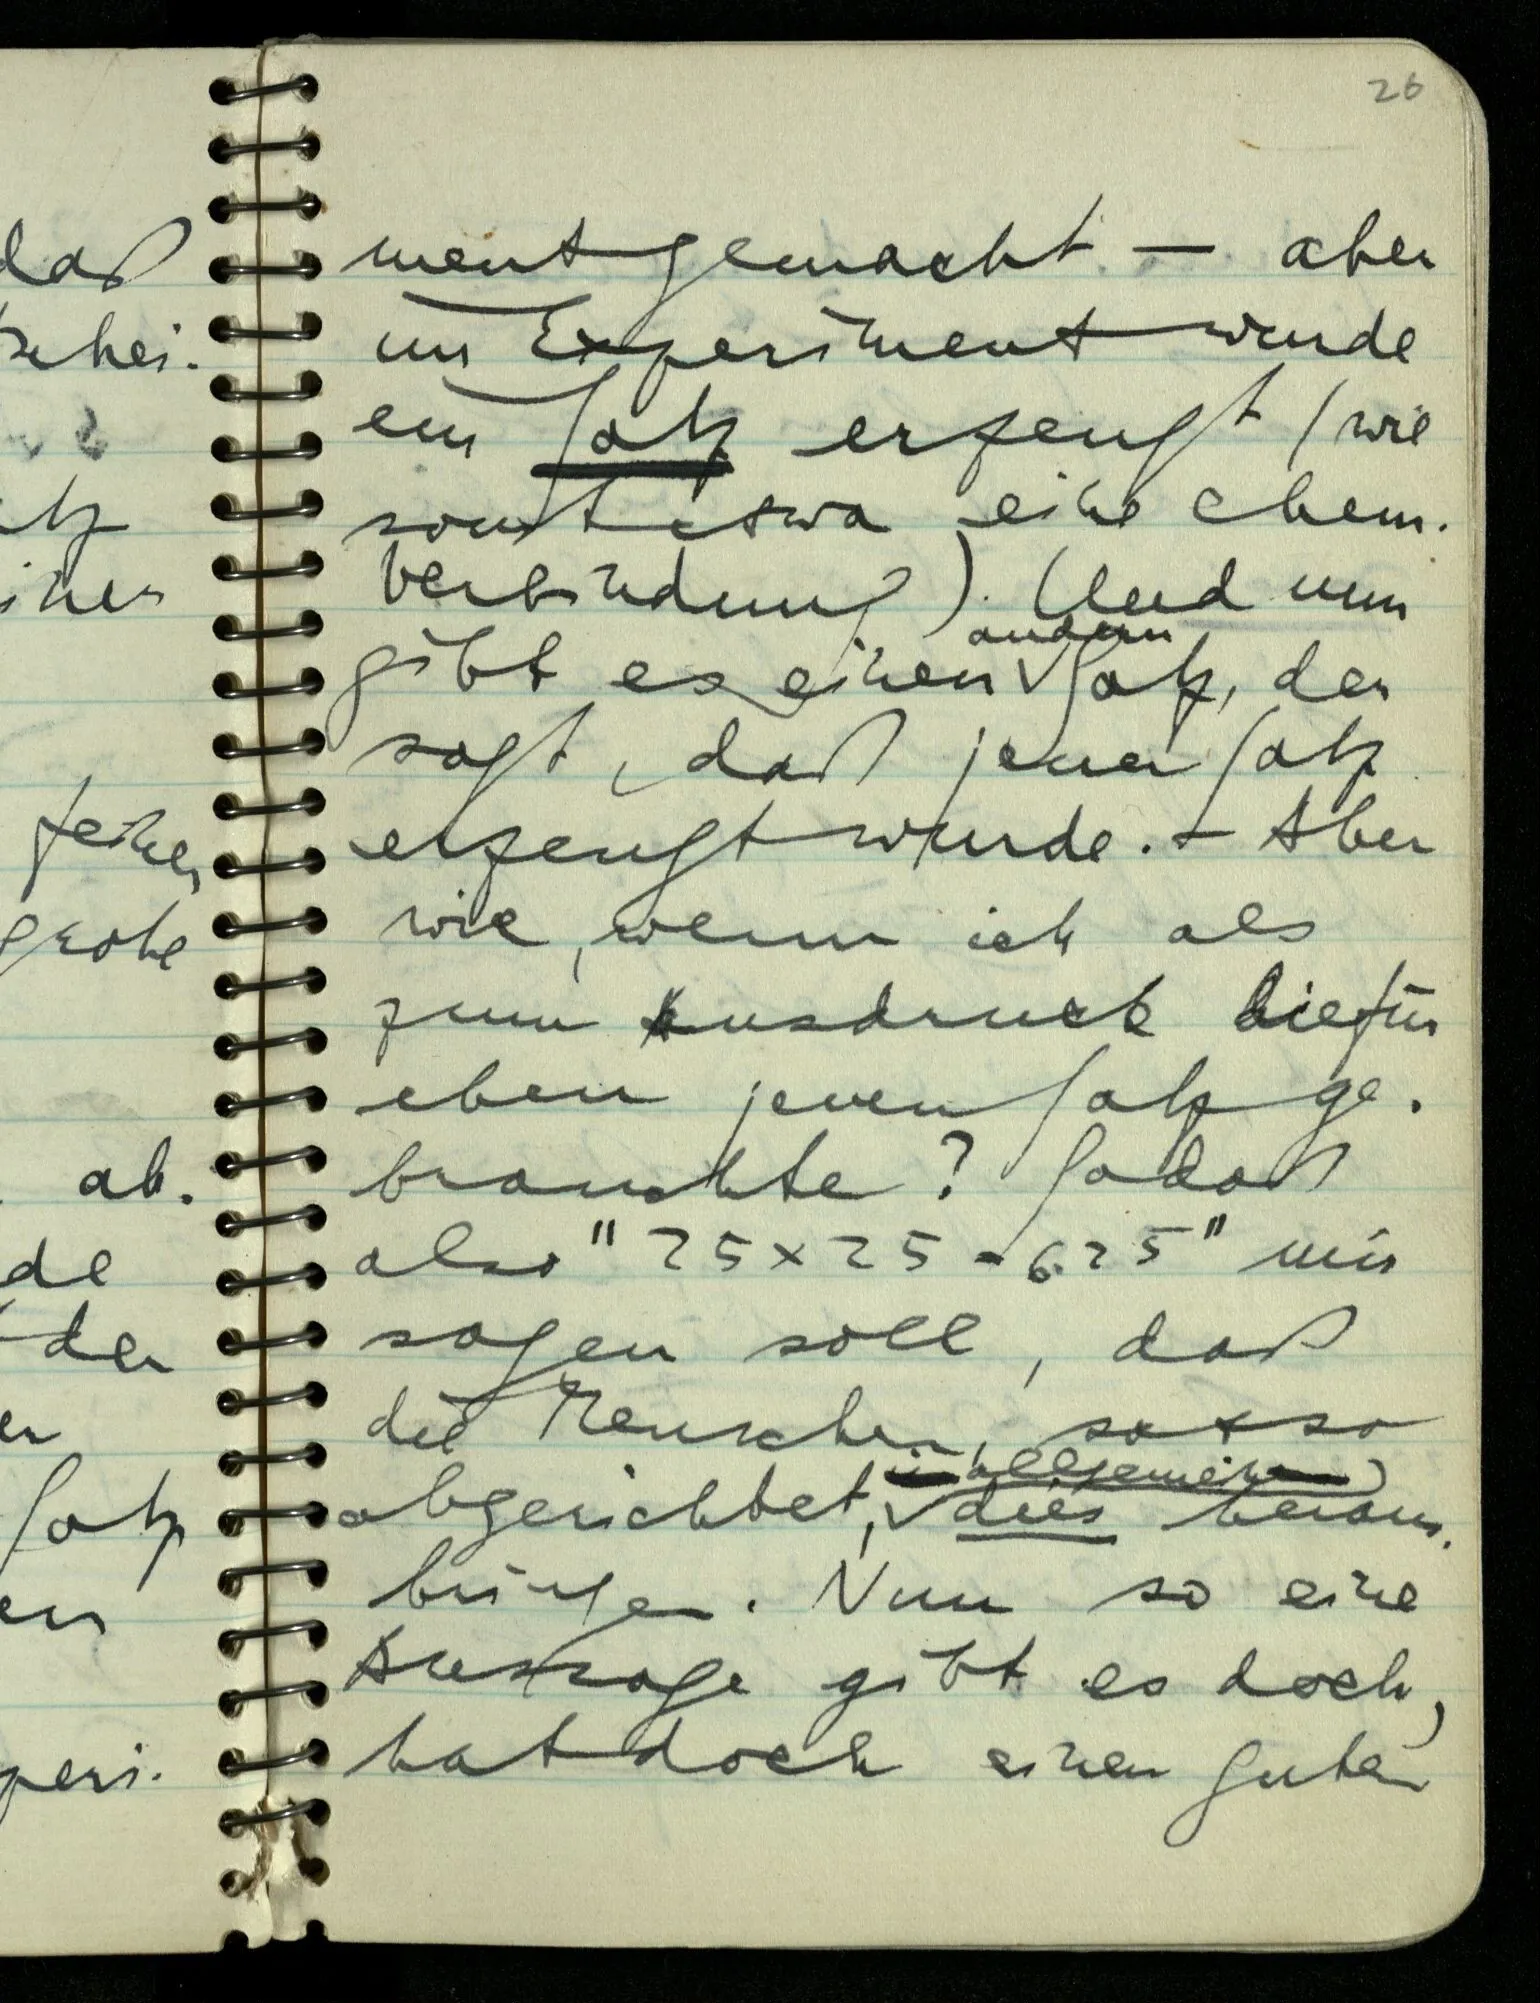 26
daß
schei-
tz
iner
feiner
grobe
ab-
de
der
er
Satz
en
peri-
ment gemacht — aber
im Experiment wurde
ein Satz erzeugt (wie
sonst etwa eine chem.
Verbindung). (Und nun
gibt es einen andern Satz, der
sagt, daß jener Satz
erzeugt wurde. – Aber
wie, wenn ich als
zum Ausdruck hiefür
eben jenen Satz ge-
brauchte? Sodaß
also "25×25 = 625" mir
sagen soll, daß
die Menschen, so & so
abgerichtet, im allgemeinen dies heraus-
bringen. Nun so eine
Aussage gibt es doch,
hat doch einen guten